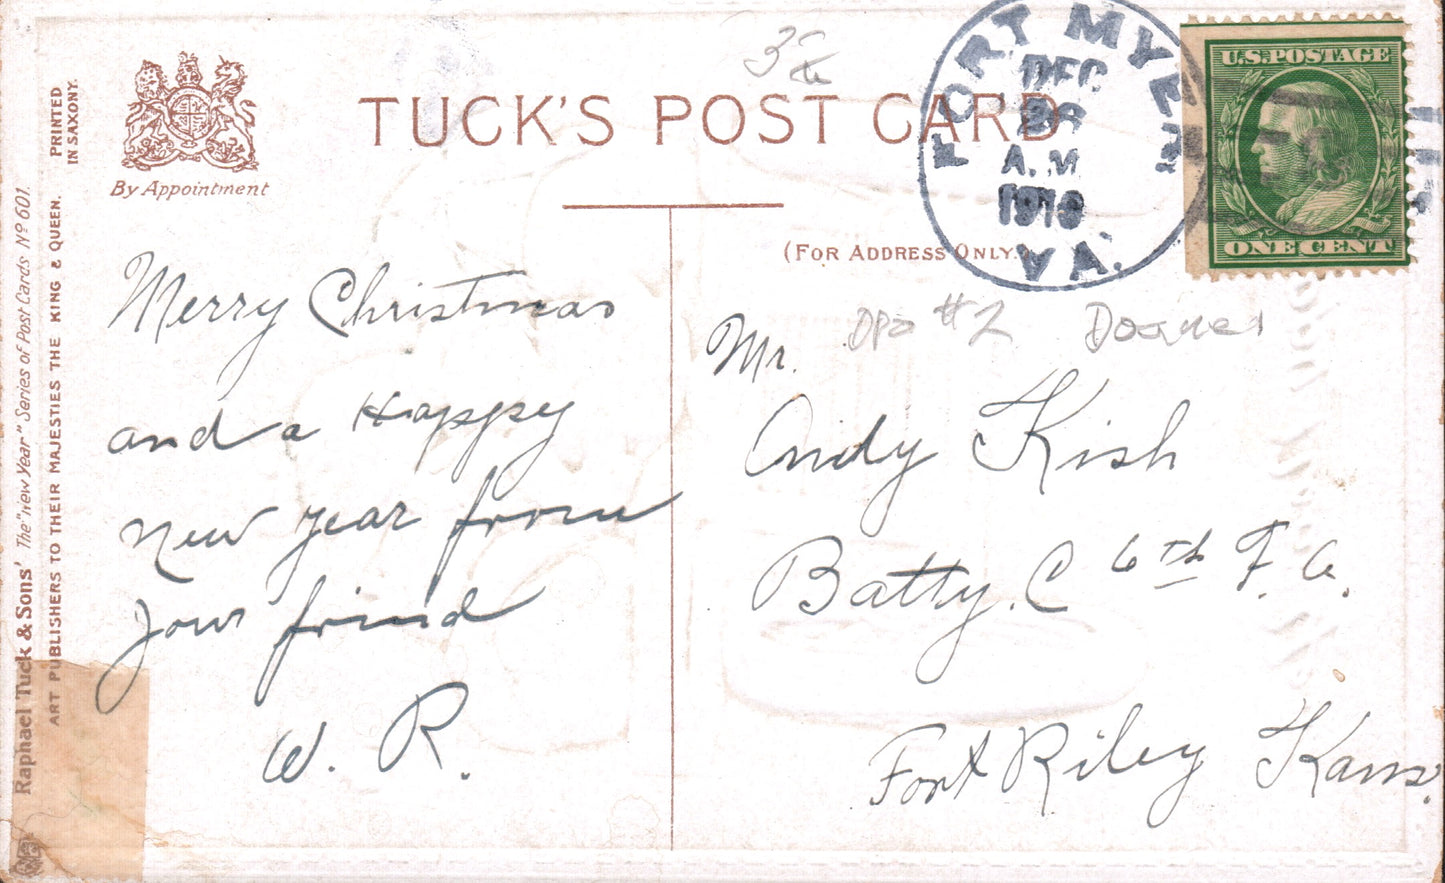 PRINTED
IN SAXONY.
By Appointment
TUCK'S POST CARD
FORT MYER
DEC
A.M.
VA.
U.S.POSTAGE
ONE CENT
Raphael Tuck & Sons' The "New Year" Series of Post Cards Nº 601.
ART PUBLISHERS TO THEIR MAJESTIES THE KING & QUEEN.
(FOR ADDRESS ONLY.)
Merry Christmas
and a Happy
New Year from
your friend
W. R.
#2
Mr.
Andy Kish
Batty. C 6th F. A.
Fort Riley Kans.